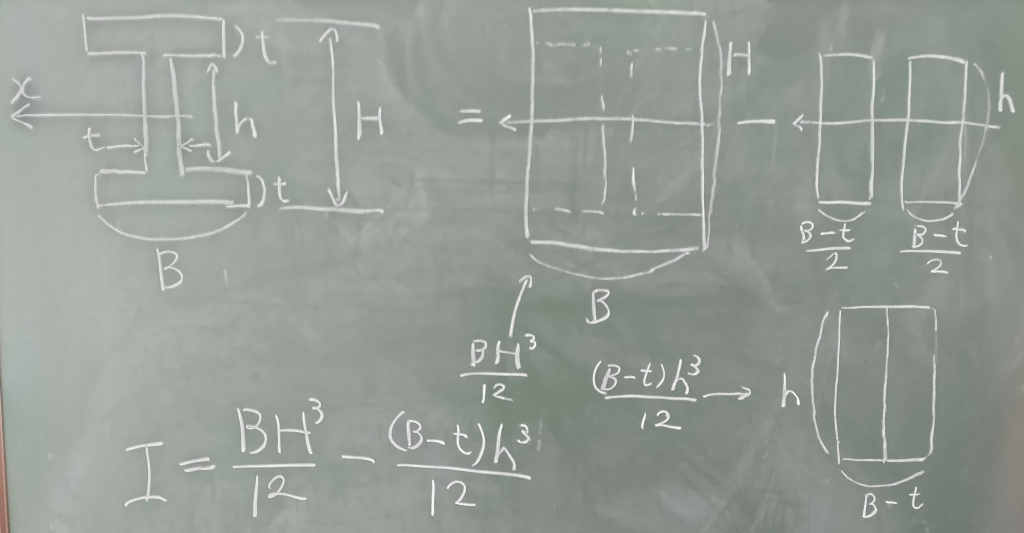 t
x
t
h
H
t
B
=
H
B
−
h
B-t/2
B-t/2
BH³/12
(B-t)h³/12 →
h
B-t
I = BH³/12 − (B-t)h³/12